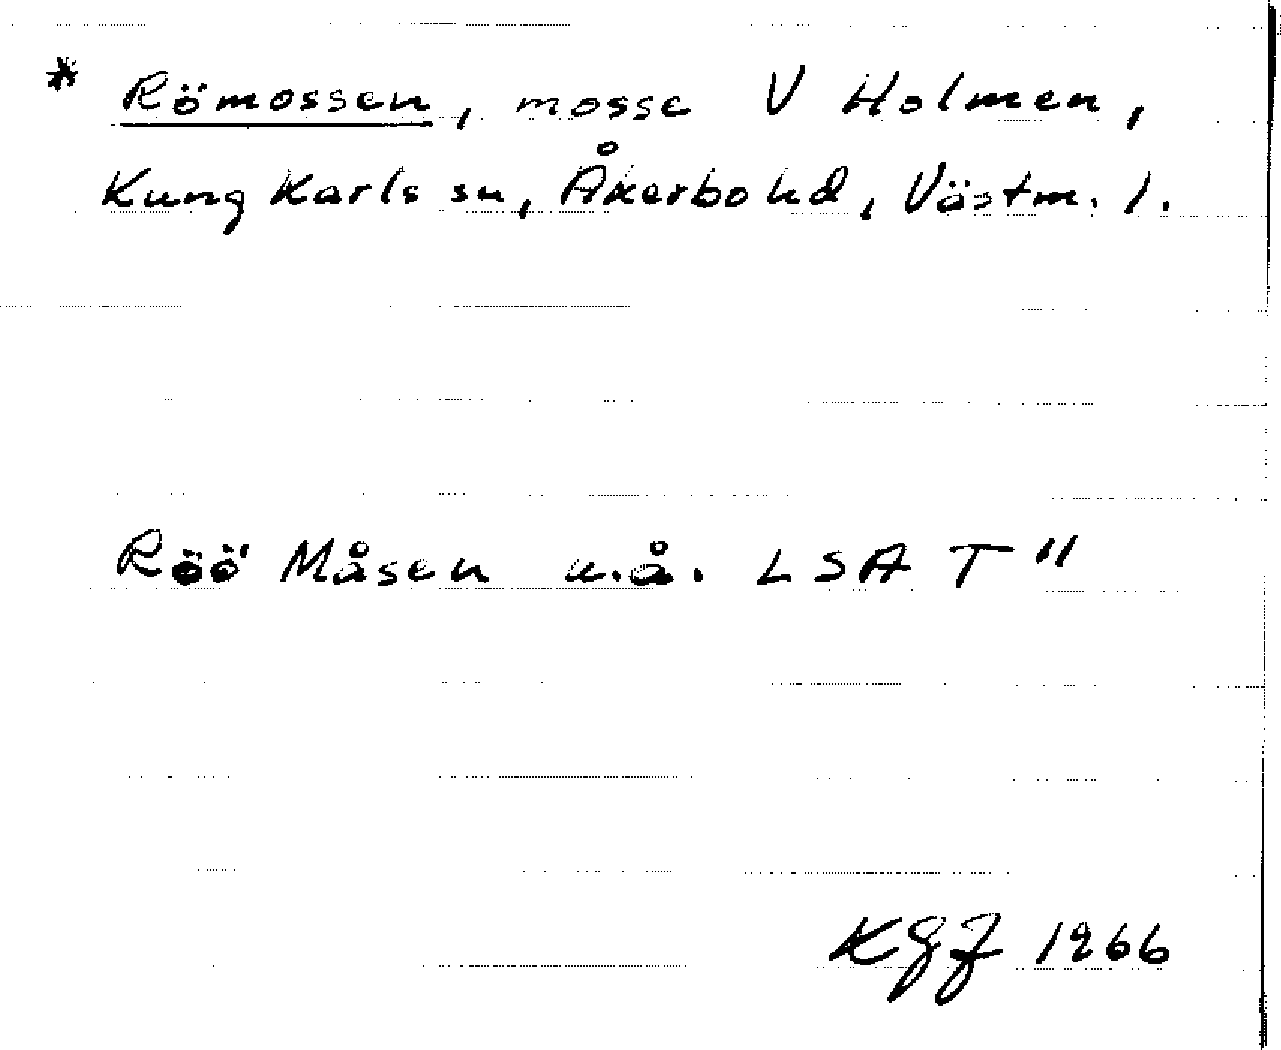 * Römossen, mosse V Holmen,
Kung Karls sn, Åkerbo hd, Västm. l.
Röö Måsen u.å. LSA T 11
KGJ 1966